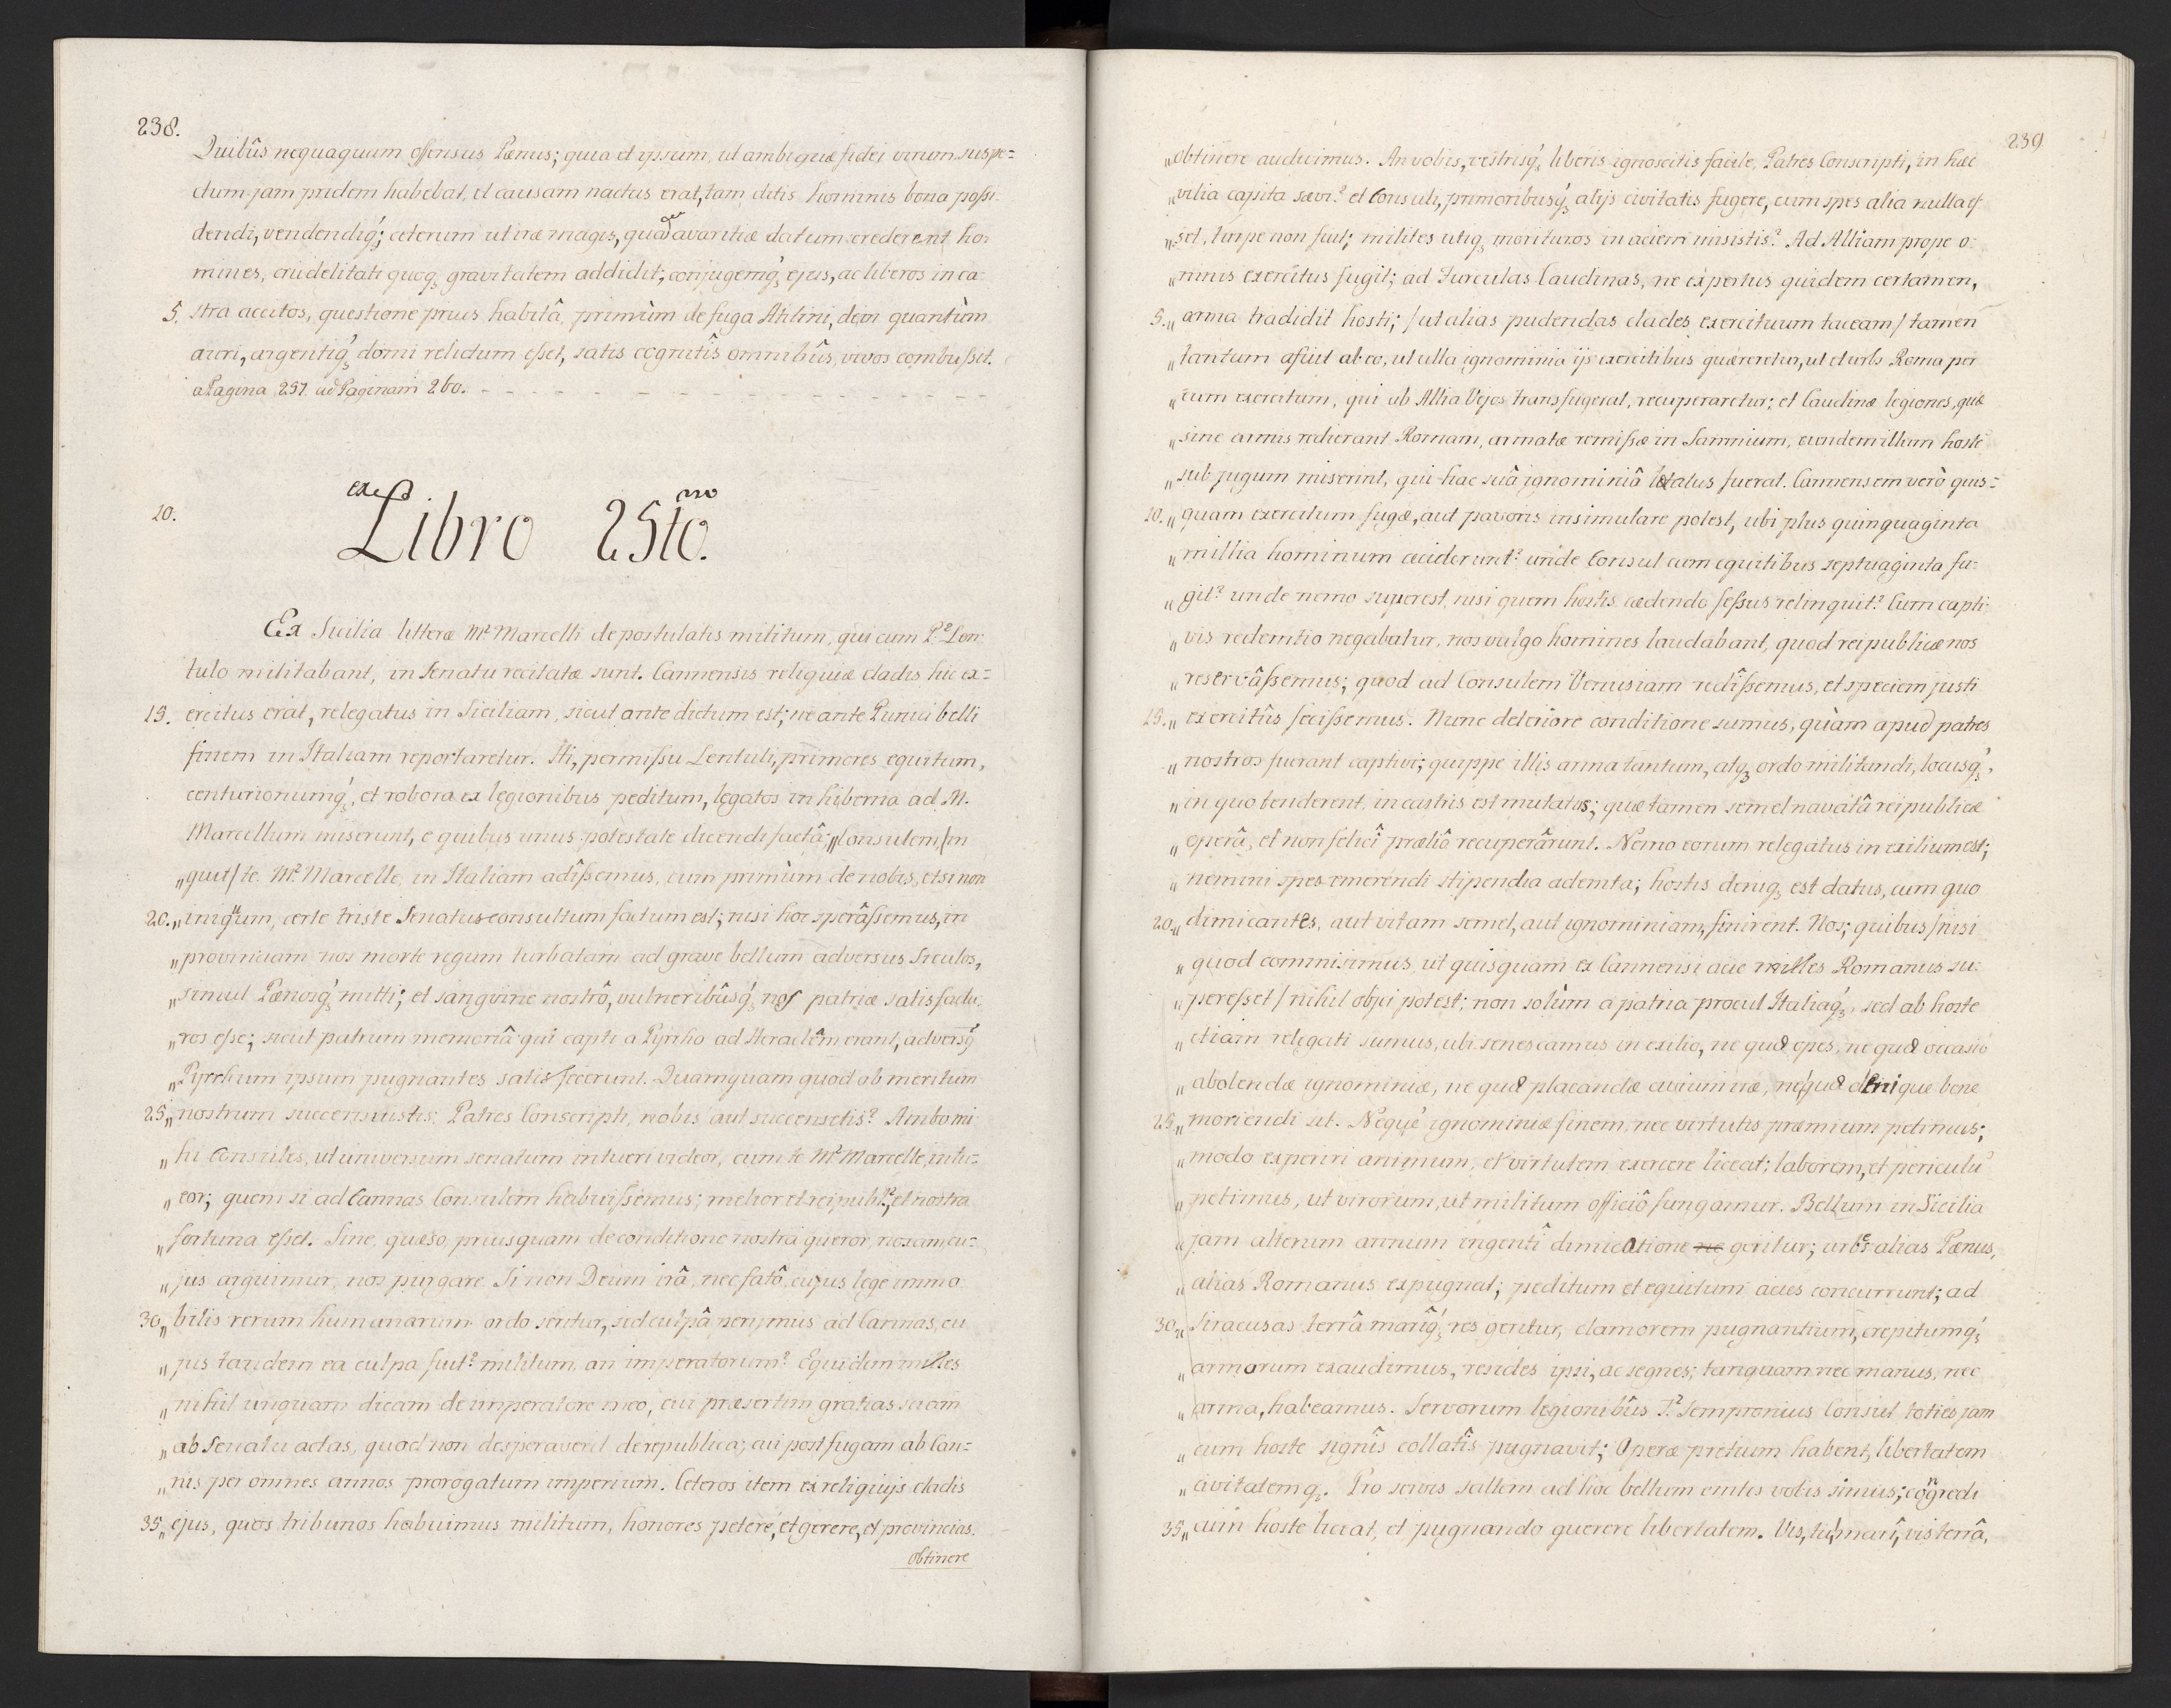 238.
Quibûs nequaquam offensus Pœnus; quia et ipsum, ut ambiguæ fidei virum suspe=
ctum jam pridem habebat, et causam nactus erat, tam ditis hominis bona possi-
dendi, vendendiq́; ceterum ut iræ magis, quàm avaritiæ datum crederent ho-
mines, crudelitati quoq gravitatem addidit; conjugemq́ ejus, ac liberos in ca-
5. stra accitos, quæstione prius habitâ, primùm de fuga Altini, dein quantùm
auri, argentiq́ domi relictum esset, satis cognitîs omnibûs, vivos combussit.
a Pagina 257. ad Paginam 260.
10.
ex
Libro 25to.
mo
Ex Sicilia litteræ M. Marcelli de postulatis militum, qui cum P. Len-
tulo militabant, in Senatu recitatæ sunt. Cannensis reliquiæ cladis hic ex=
15. ercitus erat, relegatus in Siciliam, sicut ante dictum est; ne ante Punici belli
finem in Italiam reportaretur. Hi, permissu Lentuli, primores equitum,
centurionumq́, et robora ex legionibus peditum, legatos in hiberna ad M.
Marcellum miserunt, e quibus unus potestate dicendi factâ; „Consulem /in
„quit/ te M. Marcelle, in Italiam adîssemus, cum primùm de nobis, etsi non
20. „iniquum, certe triste Senatusconsultum factum est; nisi hoc sperâssemus, in
„provinciam nos morte regum turbatam ad grave bellum adversus Siculos,
„simul Pœnosq́ mitti; et sanguine nostrô, vulneribûsq́ nos patriæ satisfactu-
„ros esse; sicut patrum memoriâ qui capti a Pyrrho ad Heraclêam erant, adversq
„Pyrrhum ipsum pugnantes satisfecerunt. Quamquam quod ob meritum
25. „nostrum succensuistis, Patres Conscripti, nobis aut succensetis? Ambo mi-
„hi Consules, ut universum senatum intueri videor, cum te M. Marcelle, intu=
„eor; quem si ad Cannas Consulem habuissemus; melior et reipubl., et nostra
„fortuna esset. Sine, quæso, priusquam de conditione nostra queror, noxam, cu=
„jus arguimur, nos purgare. Si non Deum irâ, nec fatô, cujus lege immo-
30. „bilis rerum humanarum ordo seritur, sed culpâ perijmus ad Cannas, cu
„jus tandem ea culpa fuit? militum, an imperatorum? Equidem miles
„nihil unquam dicam de imperatore meo, cui præsertim gratias sciam
„ab Senatu actas, quod non desperaverit de republica; cui post fugam ab Can=
„nis per omnes annos prorogatum imperium. Ceteros item ex reliquijs cladis
35. „ejus, quos tribunos habuimus militum, honores petere, et gerere, et provincias.
obtinere
239
„obtinere audivimus. An vobis, vestrisq́ liberis ignoscitis facile, Patres Conscripti, in hæc
„vilia capita sævi? et Consuli, primoribusq́ alijs civitatis fugere, cum spes alia nulla es
„set, turpe non fuit; milites utiq morituros in aciem misistis? Ad Alliam prope o-
„mnis exercitus fugit; ad Furculas Caudinas, ne expertus quidem certamen,
5. „arma tradidit hosti; /ut alias pudendas clades exercituum taceam/ tamen
„tantum afuit ab eo, ut ulla ignominia ijs exercitibus quæreretur, ut et urbs Roma per
„eum exercitum, qui ab Allia Vejos transfugerat, recuperaretur; et Caudinæ legiones, quæ
„sine armis redierant Romam, armatæ remissæ in Samnium, eundem illum hostē
„sub jugum miserint, qui hac suâ ignominiâ lætatus fuerat. Cannensem verò quis=
10. „quam exercitum fugæ, aut pavoris insimulare potest, ubi plus quinquaginta
„millia hominum ceciderunt? unde Consul cum equitibus septuaginta fu-
„git? unde nemo superest, nisi quem hostis cædendo fessus relinquit? Cum capti-
„vis redemtio negabatur, nos vulgo homines laudabant, quod reipublicæ nos
„reservâssemus; quod ad Consulem Venusiam redîssemus, et speciem justi
15. „exercitûs fecissemus. Nunc deteriore conditione sumus, quàm apud patres
„nostros fuerant captivi; quippe illis arma tantum, atq ordo militandi, locusq́,
„in quo tenderent in castris est mutatus; quæ tamen semel navatâ reipublicæ
„operâ, et non felicî prœliô recuperârunt. Nemo eorum relegatus in exilium est;
„nemini spes emerendi stipendia ademta; hostis deniq est datus, cum quo
20. „dimicantes, aut vitam semel, aut ignominiam, finirent. Nos; quibus /nisi
„quod commisimus, ut quisquam ex Cannensi acie miles Romanus su-
„peresset/ nihil objici potest; non solùm a patria procul Italiaq́, sed ab hoste
„etiam relegati sumus, ubi senescamus in exilio, ne qua spes, ne qua occasio
„abolendæ ignominiæ, ne qua placandæ civium iræ, ne qua denique bene
25. „moriendi sit. Neque ignominiæ finem, nec virtutis præmium petimus;
„modo experiri animum, et virtutem exercere liceat; laborem, et periculū
„petimus, ut virorum, ut militum officiô fungamur. Bellum in Sicilia
„jam alterum annum ingentî dimicatione ne geritur; urbes alias Pœnus,
„alias Romanus expugnat; peditum et equitum acies concurrunt; ad
30. „Siracusas terrâ marîq́ res geritur, clamorem pugnantium, crepitumq́
„armorum exaudimus, resides ipsi, ac segnes; tanquam nec manus, nec
„arma, habeamus. Servorum legionibûs T. Sempronius Consul toties jam
„cum hoste signîs collatîs pugnavit; Operæ pretium habent, libertatem
„civitatemq. Pro servis saltem ad hoc bellum emtis vobis simus; congredi
35. „cum hoste liceat, et pugnando quærere libertatem. Vis, tu, marî, vis terrâ,